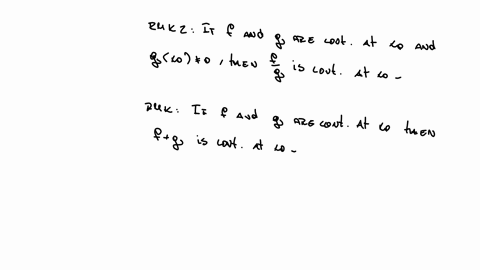 RMK2: If f and g are cont. at x0 and
g(x0) ≠ 0, then f/g is cont. at x0 -
RMK: If f and g are cont. at x0 then
f+g is cont. at x0 -